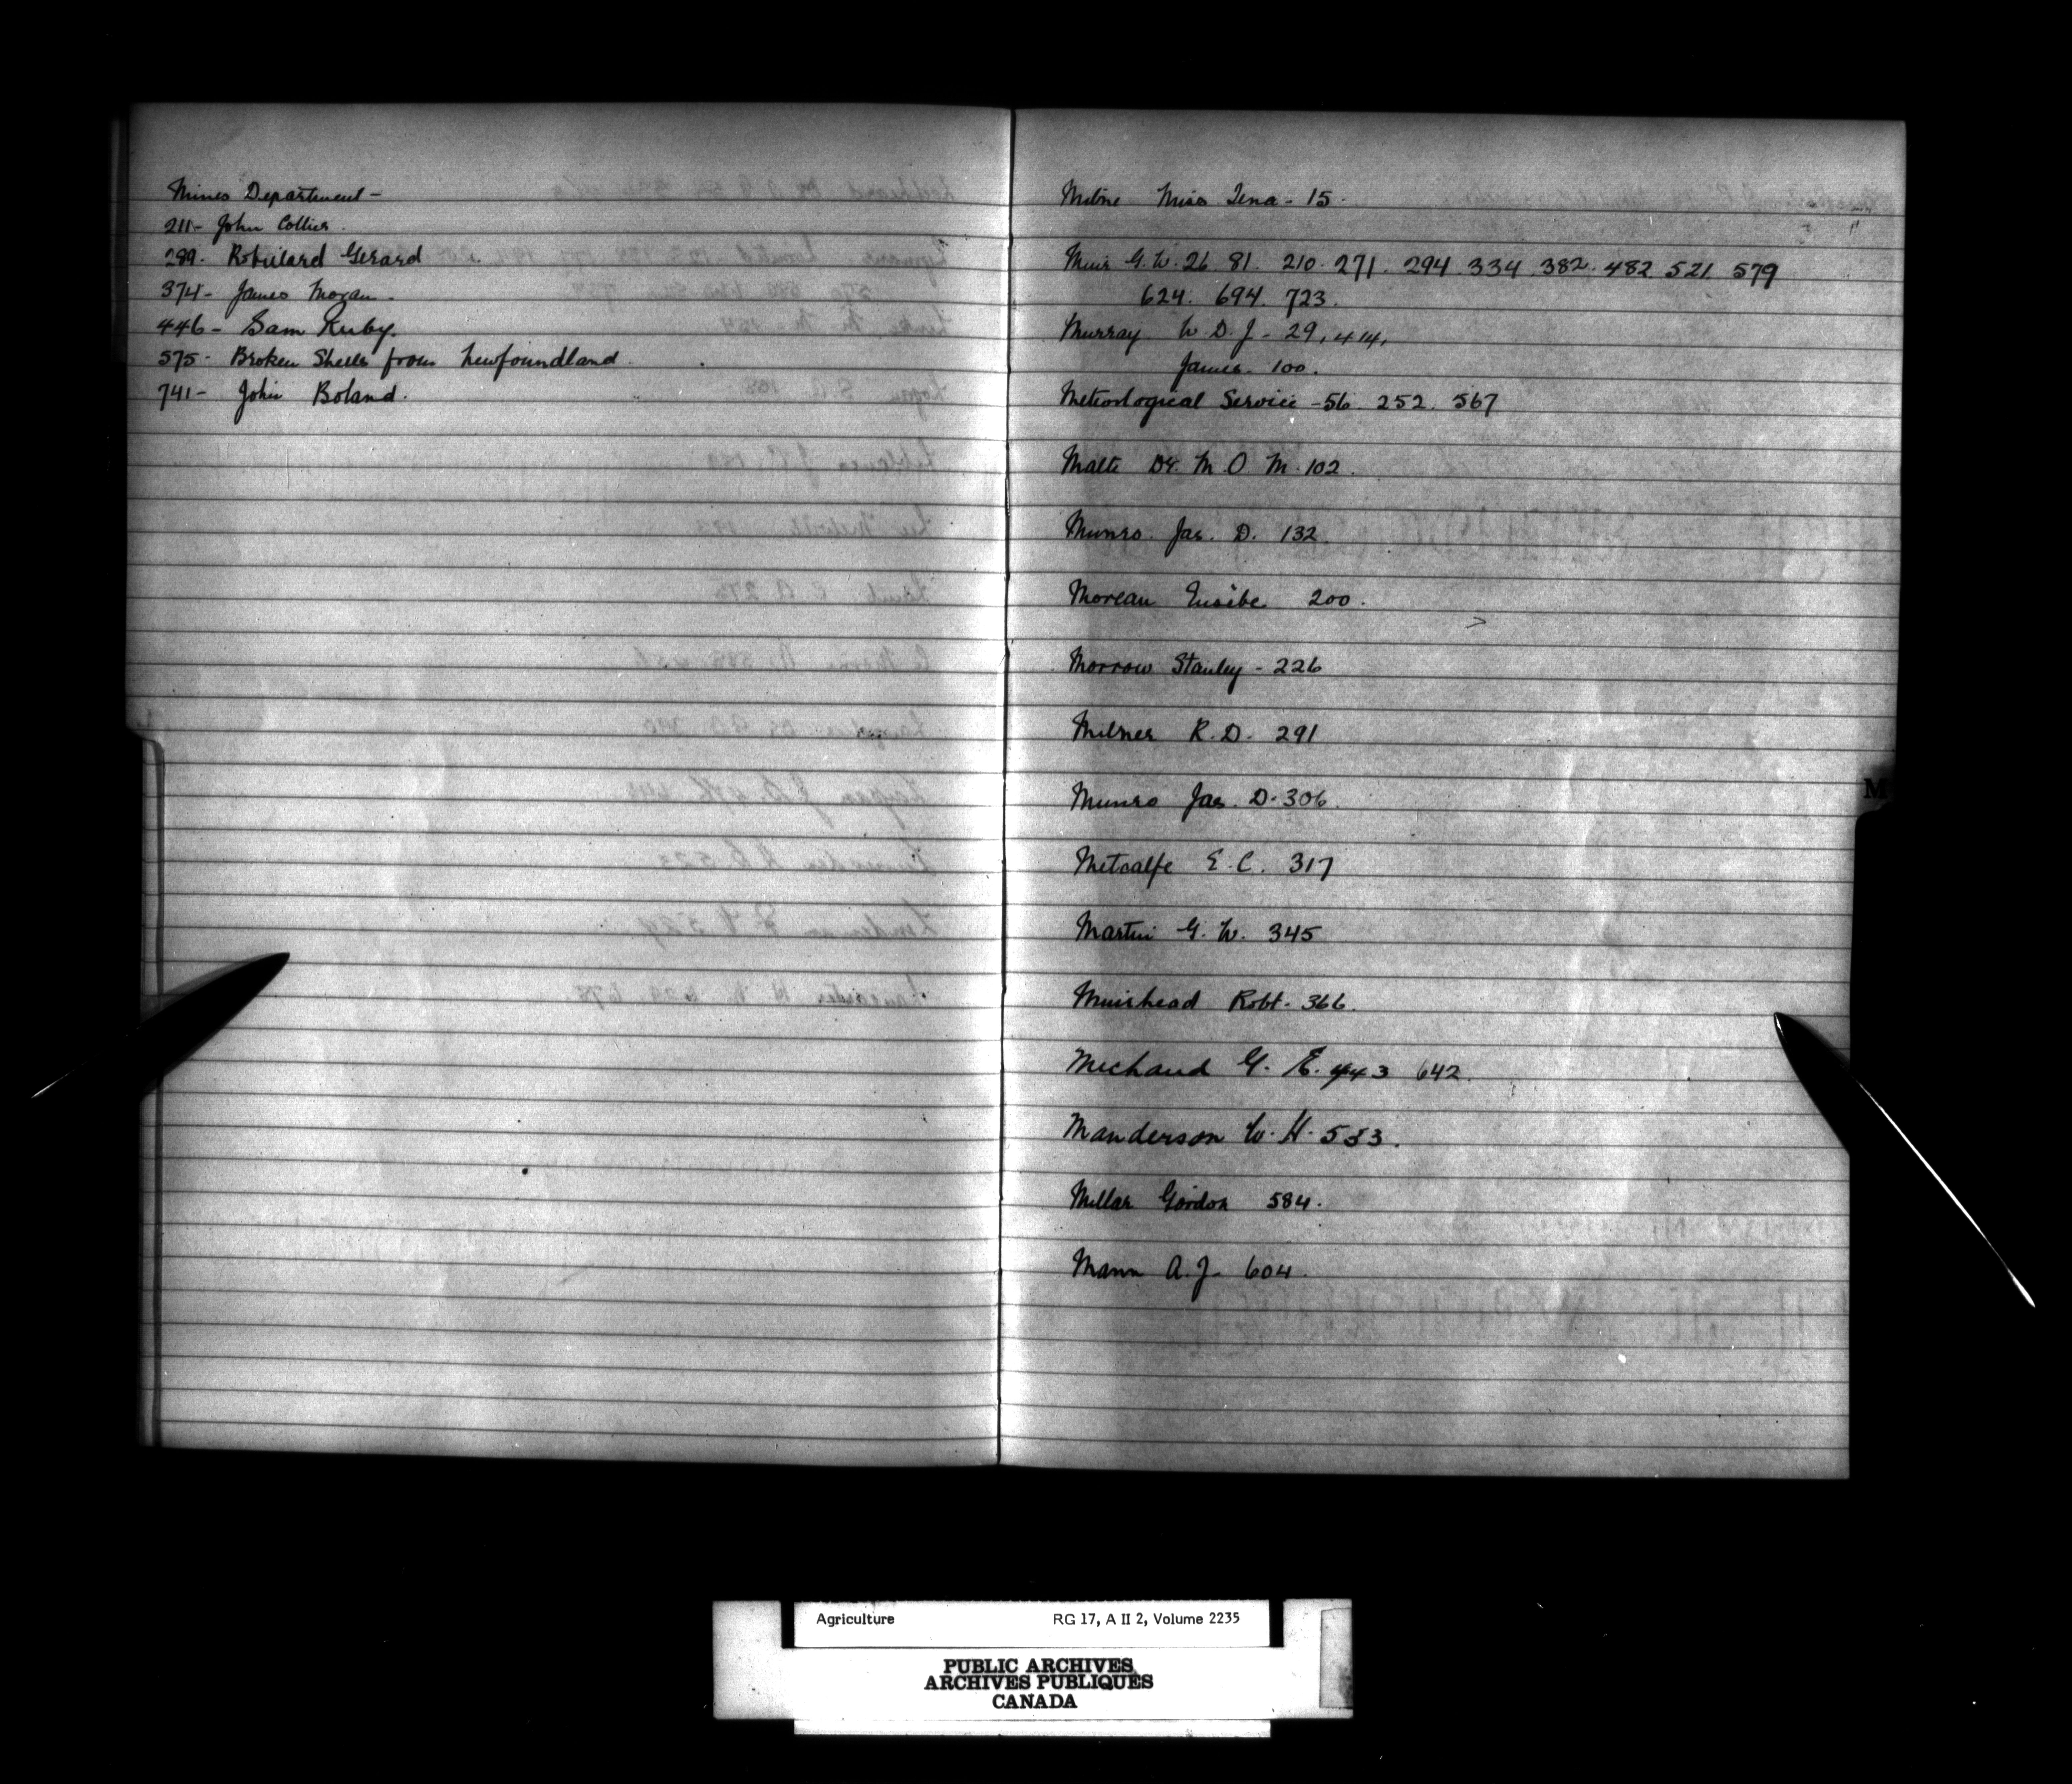 Mines Department -
211- John Collier.
289. Robillard Gerard
374- James Moran.
446- Sam Ruby.
575- Broken Shells from Newfoundland.
741- John Boland.
Milne Miss Tena - 15.
Muir G.W. 26 81. 210. 271. 294 334 382. 482 521 579
624. 694. 723.
Murray W.D.J - 29, 414,
James. 100.
Meteorlogical Service - 56. 252. 567
Malte Dr. M O M. 102.
Munro. Jas. D. 132.
Moreau Eusèbe 200.
Morrow Stanley - 226
Milner R.D. 291
Munro Jas. D. 306.
Metcalfe E.C. 317
Martin G.W. 345
Muirhead Robt. 366.
Michaud G. E. 443 642.
Manderson W. H. 533.
Millar Gordon 584.
Mann A.J- 604.
M
Agriculture RG 17, A II 2, Volume 2235
PUBLIC ARCHIVES
ARCHIVES PUBLIQUES
CANADA